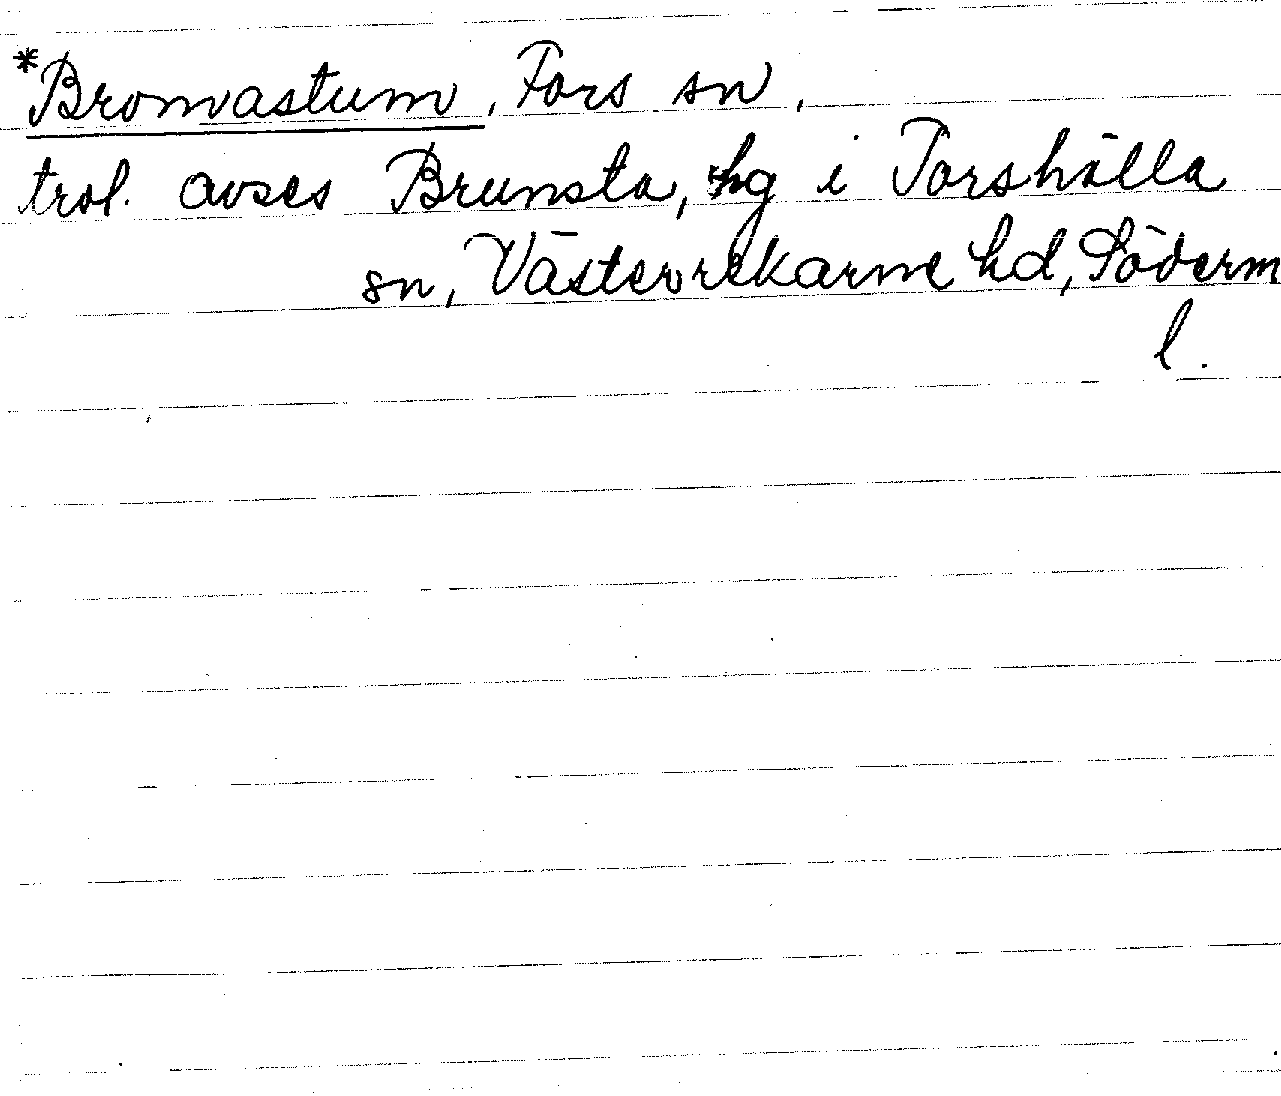 *Bromvastum, Fors sn,
trol. avses Brunsta, hg i Torshälla
sn, Västerrekarne hd, Söderm
l.